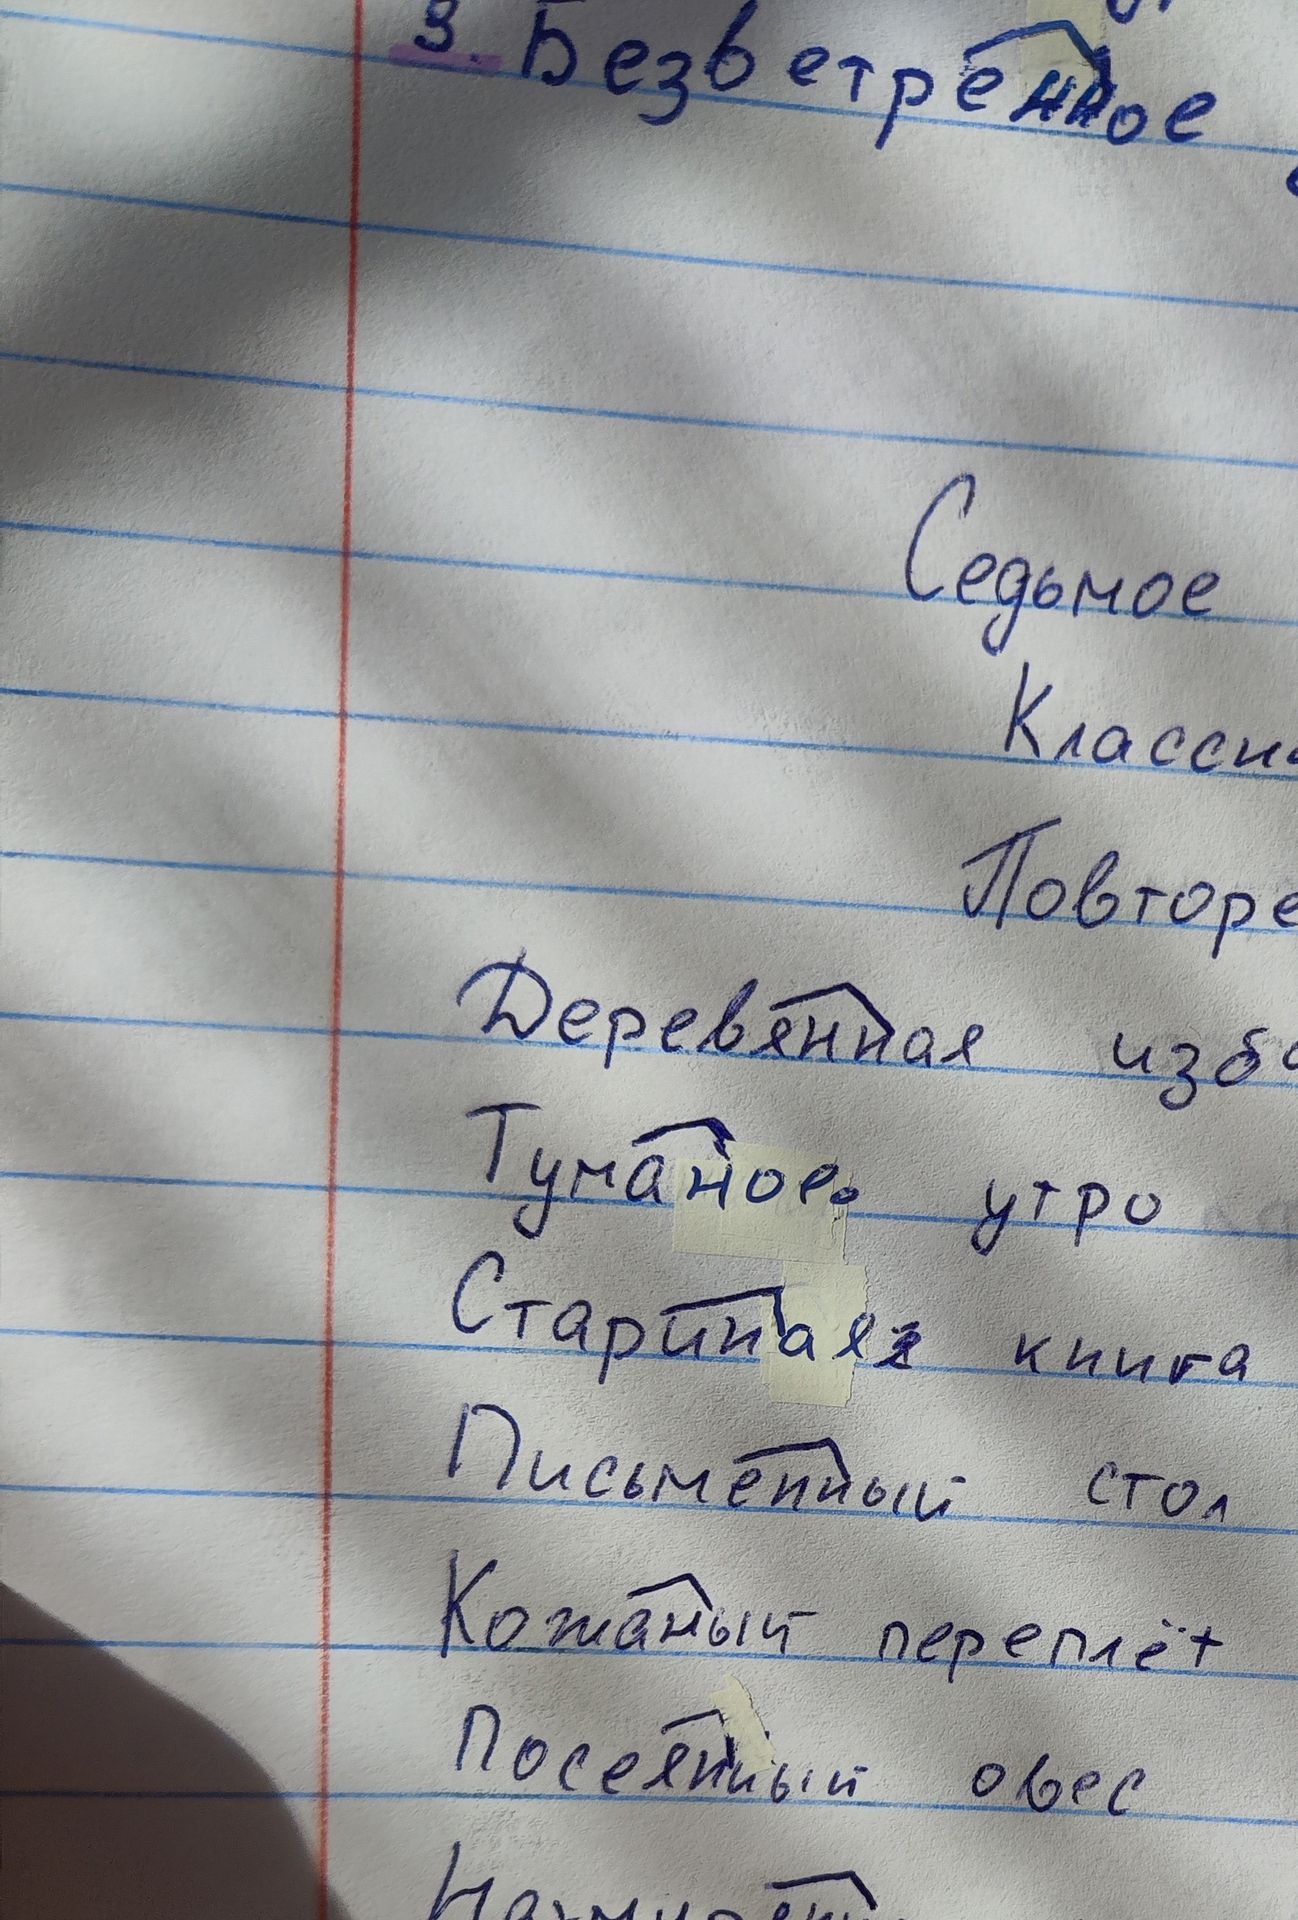 3. Безветренное
Седьмое
Классн
Повторе
Деревянная изба
Туманое. утро
Стариная книга
Письменный стол
Кожаный переплёт
Посеянный овес